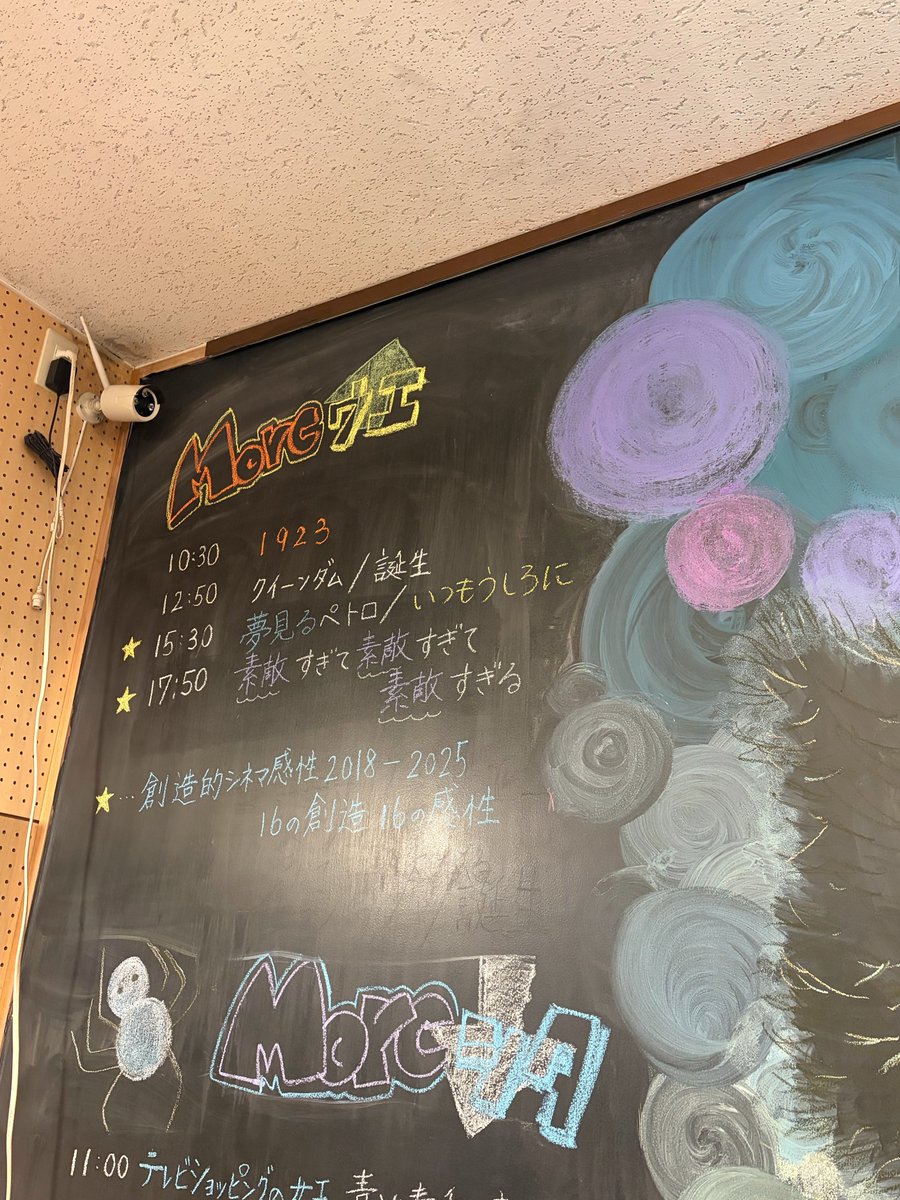 More ウエ
10:30 1923
12:50 クイーンダム/誕生
★ 15:30 夢見るペトロ/いつもうしろに
★ 17:50 素敵すぎて素敵すぎて
素敵すぎる
★…創造的シネマ感性2018-2025
16の創造 16の感性
More シタ
11:00 テレビショッピングの女王